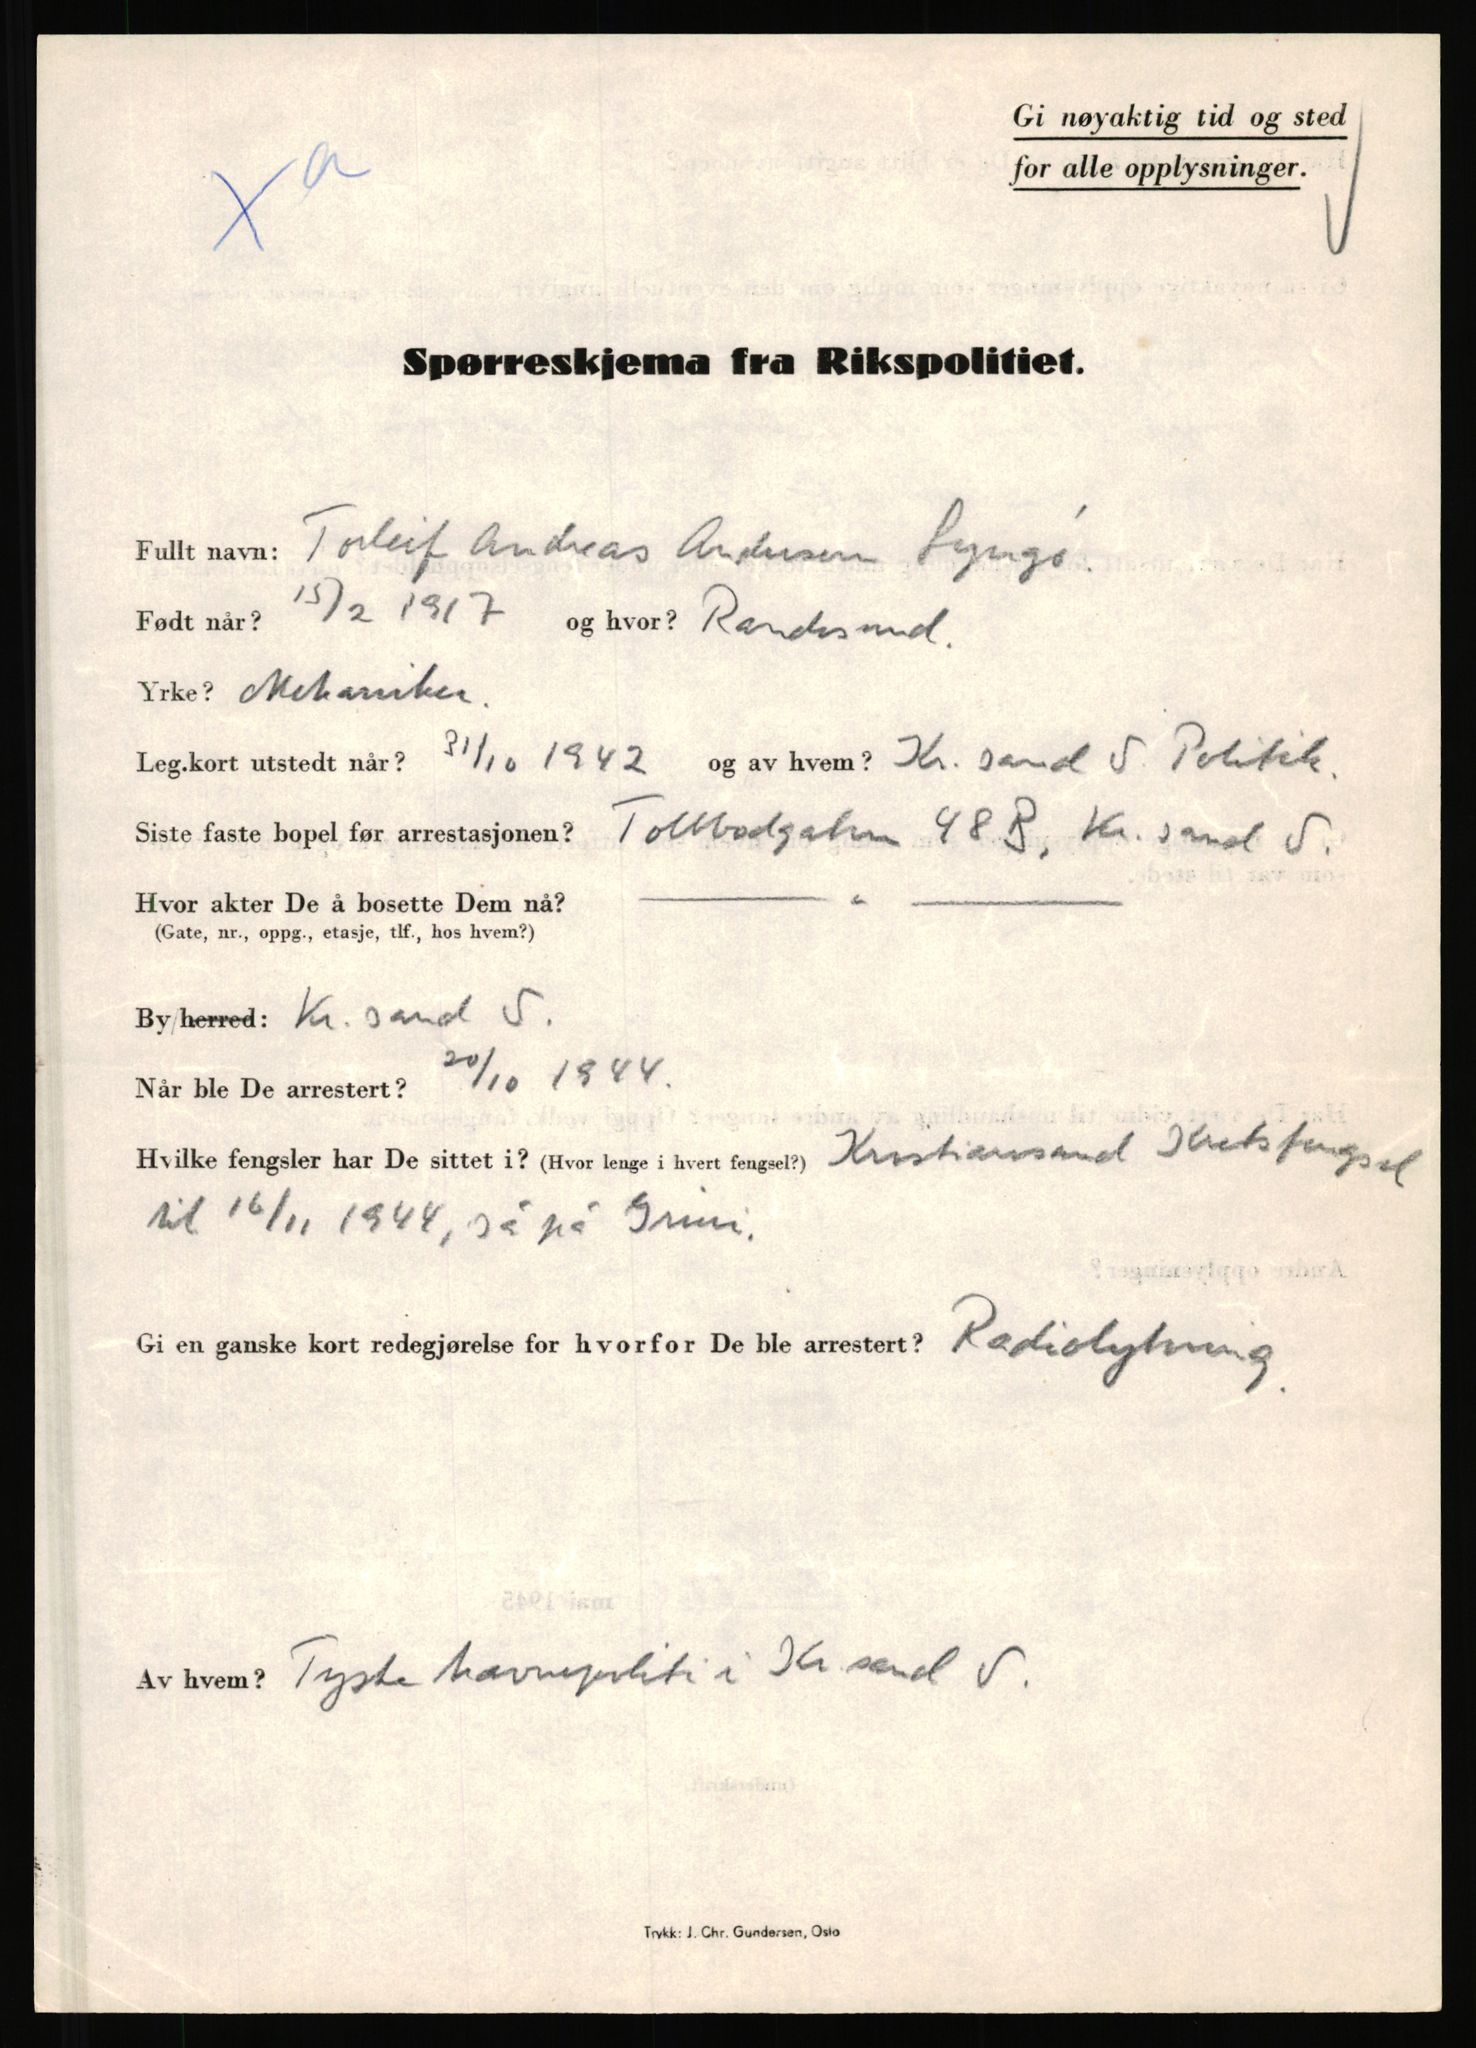 Gi nøyaktig tid og sted
for alle opplysninger.
X a
Spørreskjema fra Rikspolitiet.
Fullt navn: Torleif Andreas Andersen Lyngø.
Født når? 15/2 1917 og hvor? Randesund.
Yrke? Mekaniker.
Leg.kort utstedt når? 31/10 1942 og av hvem? Kr. sand S. Politik.
Siste faste bopel før arrestasjonen? Tollbodgaten 48 B, Kr. sand S.
Hvor akter De å bosette Dem nå? — " —
(Gate, nr., oppg., etasje, tlf., hos hvem?)
By/herred: Kr. sand S.
Når ble De arrestert? 20/10 1944.
Hvilke fengsler har De sittet i? (Hvor lenge i hvert fengsel?) Kristiansand Kretsfengsel
til 16/11 1944, så på Grini.
Gi en ganske kort redegjørelse for hvorfor De ble arrestert? Radiolytning.
Av hvem? Tyske havnepoliti i Kr. sand S.
Trykk: J. Chr. Gundersen, Oslo